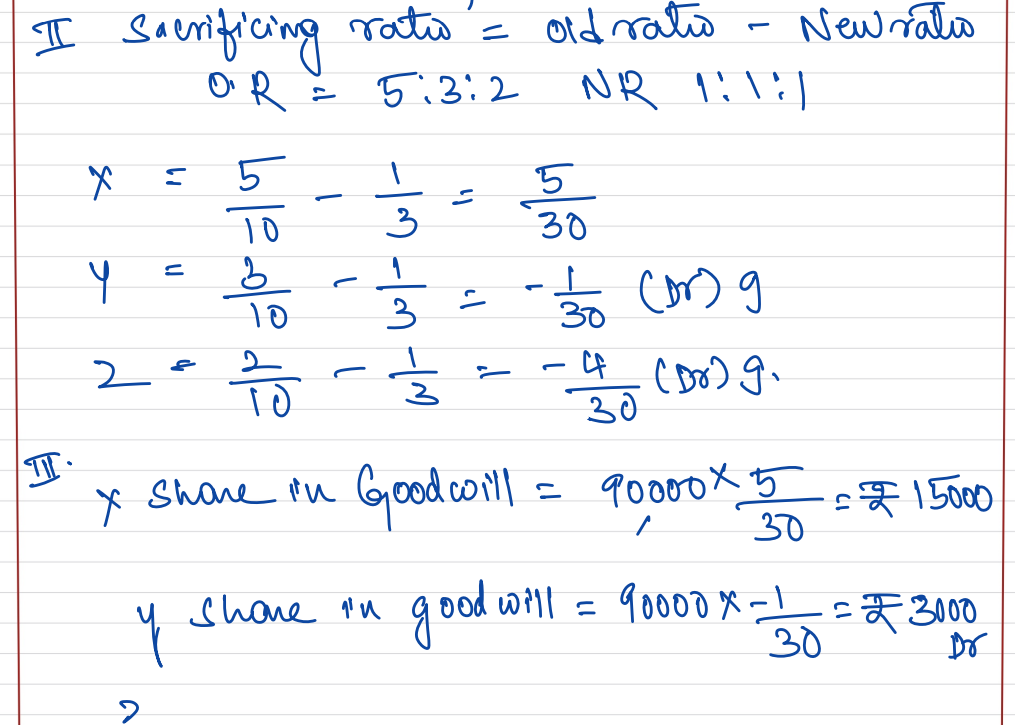 II Sacrificing ratio = old ratio - New ratio
O.R = 5:3:2 NR 1:1:1
X = 5/10 - 1/3 = 5/30
Y = 3/10 - 1/3 = -1/30 (Dr) g
Z = 2/10 - 1/3 = -4/30 (Dr) g.
III. X share in Goodwill = 90000 × 5/30 = ₹ 15000
Y share in goodwill = 90000 × -1/30 = ₹ 3000 Dr